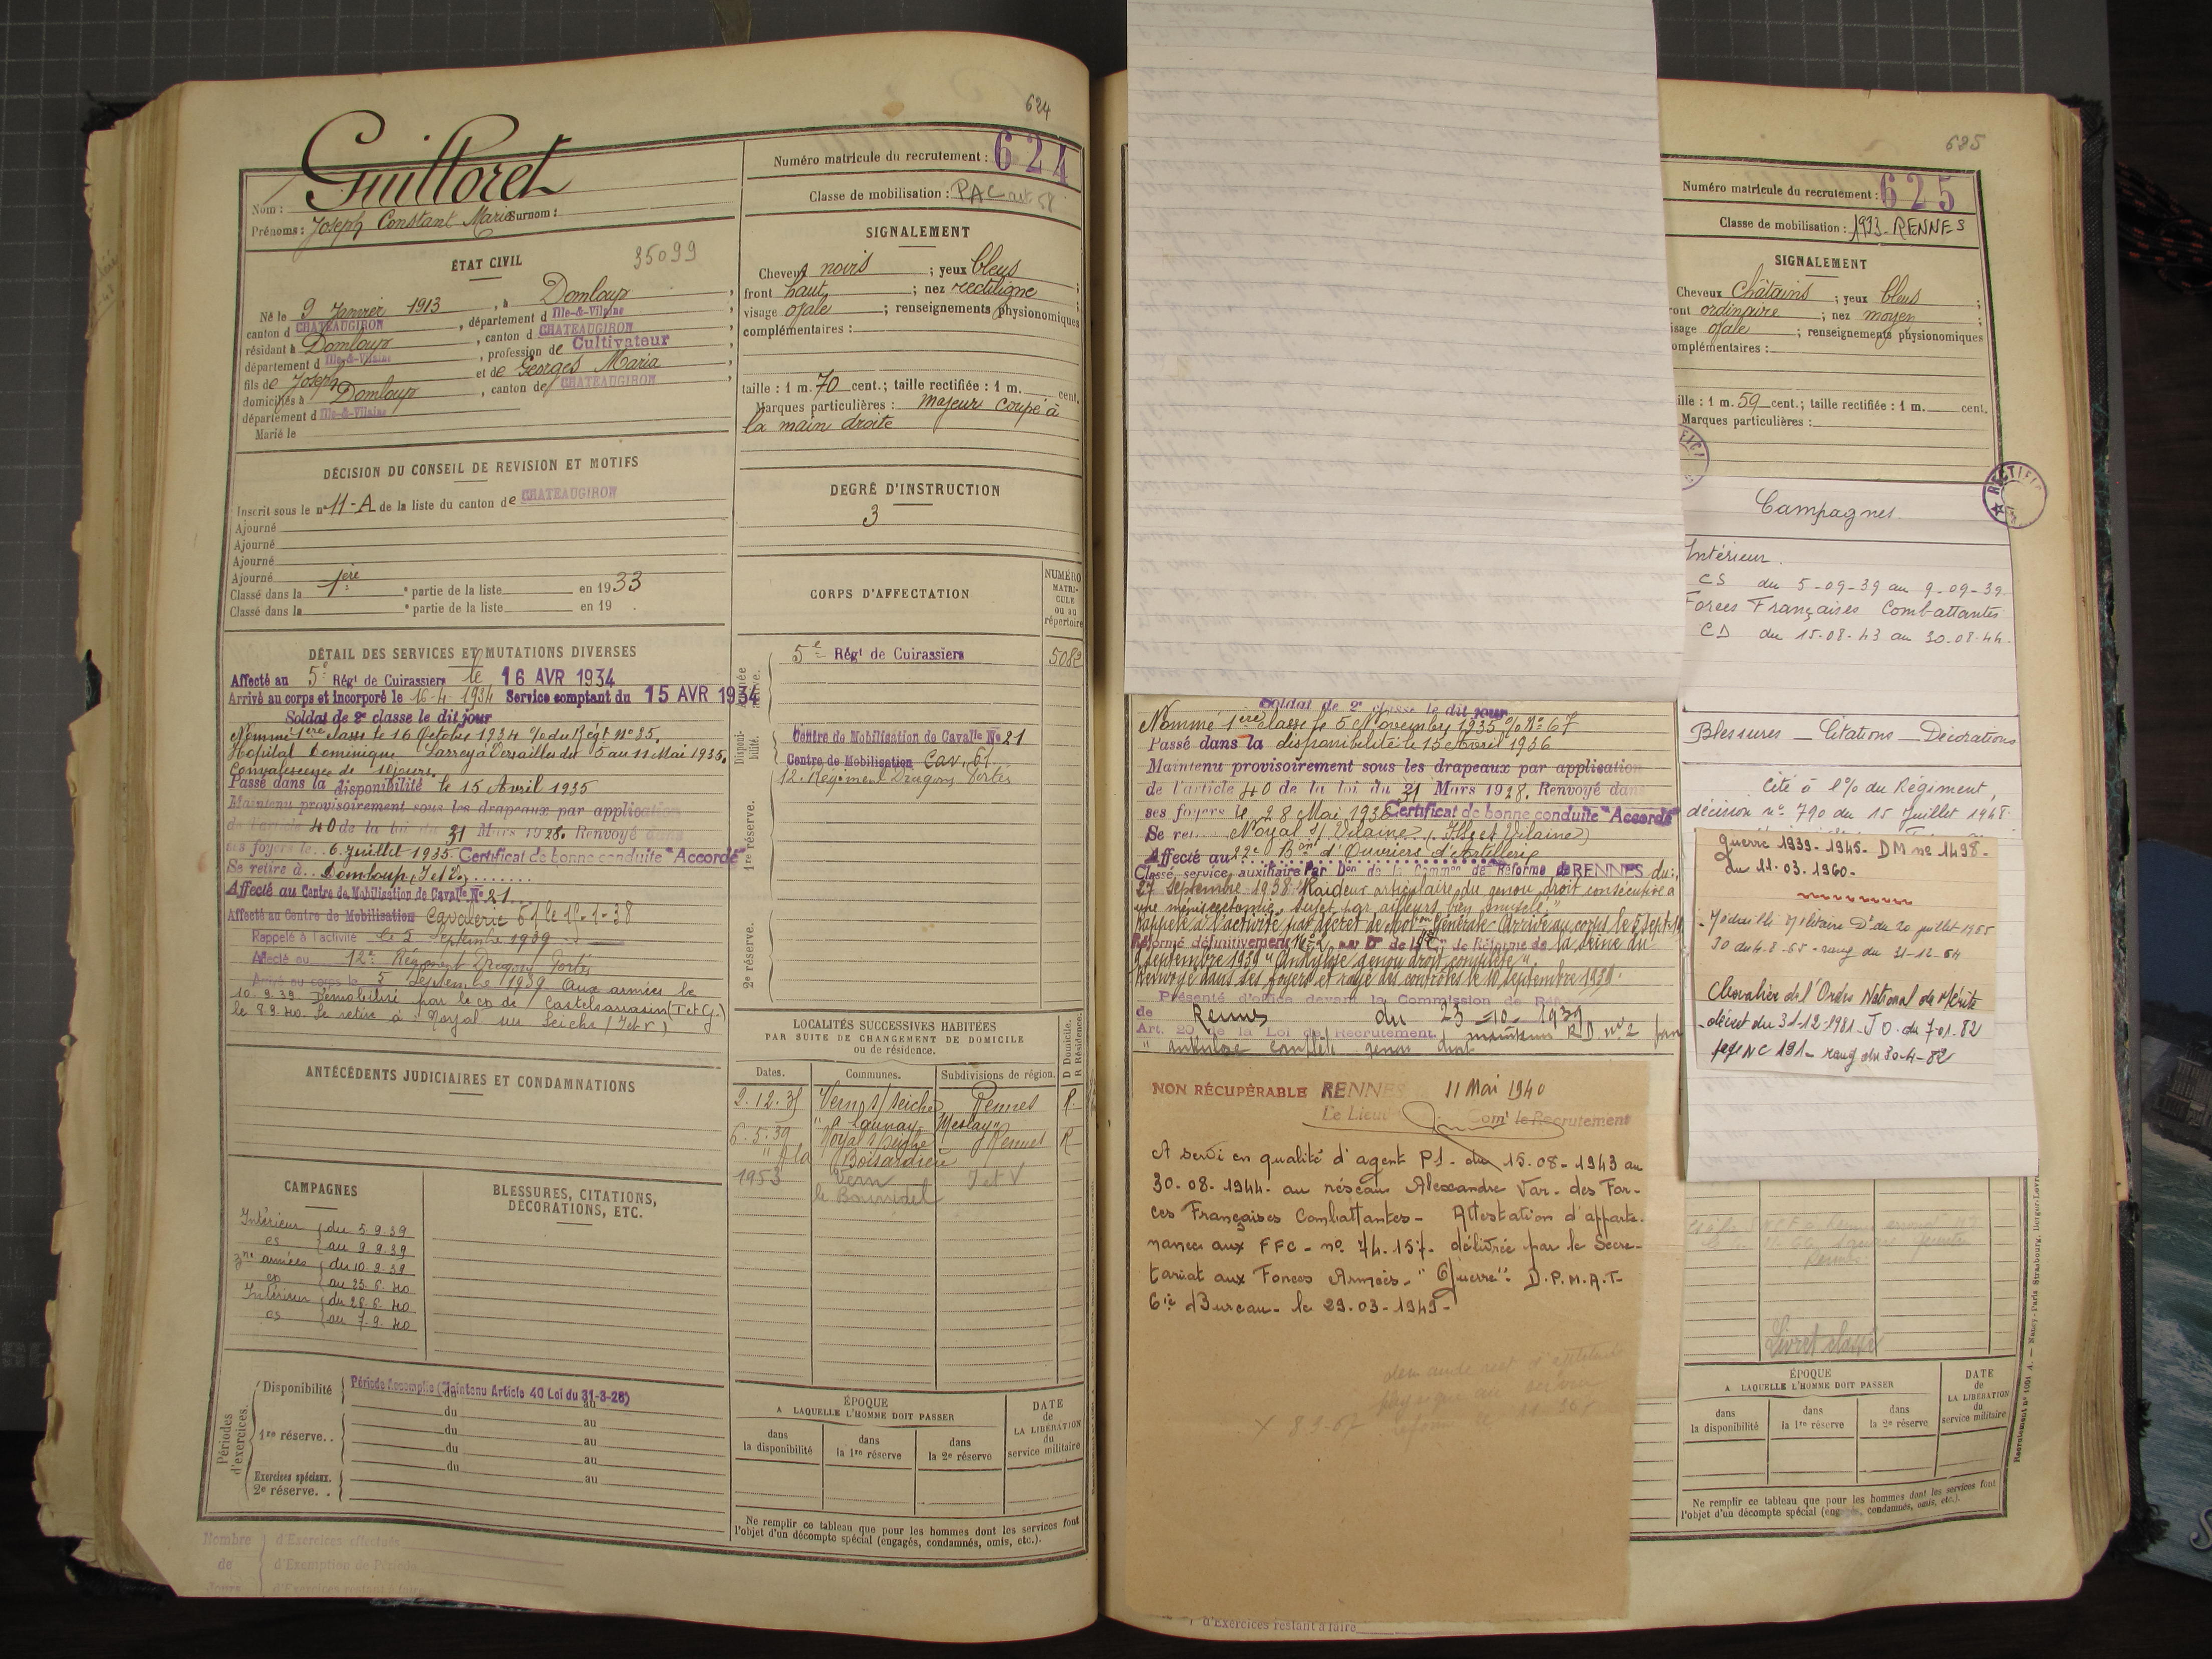 624
Numéro matricule du recrutement : 624
Classe de mobilisation : PAC art 58
Guilloret
Nom :
Prénoms : Joseph Constant Marie Surnom :
ÉTAT CIVIL
35099
Né le 9 Janvier 1913, à Domloup,
canton d CHATEAUGIRON, département d Ille-&-Vilaine
résidant à Domloup, canton d CHATEAUGIRON
département d Ille-&-Vilaine, profession de Cultivateur
fils de Joseph et de Georges Maria,
domiciliés à Domloup, canton de CHATEAUGIRON,
département d Ille-&-Vilaine
Marié le
DÉCISION DU CONSEIL DE REVISION ET MOTIFS
Inscrit sous le n° 11-A de la liste du canton de CHATEAUGIRON
Ajourné
Ajourné
Ajourné
Ajourné
Classé dans la 1ère partie de la liste en 1933
Classé dans la e partie de la liste en 19 .
DÉTAIL DES SERVICES ET MUTATIONS DIVERSES
Affecté au 5e Régt de Cuirassiers le 16 AVR 1934
Arrivé au corps et incorporé le 16-4-1934 Service comptant du 15 AVR 1934
Soldat de 2e classe le dit jour
Nommé 1ère classe le 16 Octobre 1934 % du Régt N° 85.
Hopital Dominique Larrey à Versailles du 5 au 11 Mai 1935.
Convalescence de jours.
Passé dans la disponibilité le 15 Avril 1935
Maintenu provisoirement sous les drapeaux par application
de l'article 40 de la loi du 31 Mars 1928. Renvoyé dans
ses foyers le 6 Juillet 1935 Certificat de bonne conduite "Accordé"
Se retire à Domloup, I et V.
Affecté au Centre de Mobilisation de Cavalie N° 21.
Affecté au Centre de Mobilisation Cavalerie 61 le 15-1-38
Rappelé à l'activité le 2 Septembre 1939
Affecté au 12e Régiment Dragons Portés
Arrivé au corps le 5 Septembre 1939 Aux armées le
10.9.39 Démobilisé par le cn de Castelsarrasin (T et G.)
le 8.9.40. Se retire à Noyal sur Seiche (I et V)
ANTÉCÉDENTS JUDICIAIRES ET CONDAMNATIONS
CAMPAGNES
Intérieur du 5.9.39
cs au 9.9.39
Zne armées du 10.9.39
au 25.6.40
Intérieur du 26.6.40
cs au 7.9.40
BLESSURES, CITATIONS,
DÉCORATIONS, ETC.
Périodes d'exercices.
Disponibilité Période Accomplie (Maintenu Article 40 Loi du 31-3-28)
du au
1re réserve. . du au
du au
du au
Exercices spéciaux.
2e réserve. . du au
Nombre de Jours
d'Exercices effectués
d'Exemption de Période
d'Exercices restant à faire
SIGNALEMENT
Cheveux noirs ; yeux bleus
front haut ; nez rectiligne ;
visage ovale ; renseignements physionomiques
complémentaires :
taille : 1 m. 70 cent.; taille rectifiée : 1 m. cent.
Marques particulières : majeur coupé à
la main droite
DEGRÉ D'INSTRUCTION
3
CORPS D'AFFECTATION
NUMÉRO MATRICULE ou au répertoire
5e Régt de Cuirassiers 5082
Disponibilité.
Centre de Mobilisation de Cavalie N° 21
Centre de Mobilisation Cav. 61
12e Régiment Dragons Portés
1re réserve.
2e réserve.
LOCALITÉS SUCCESSIVES HABITÉES
PAR SUITE DE CHANGEMENT DE DOMICILE
ou de résidence.
D Domicile. R Résidence.
Dates. Communes. Subdivisions de région.
2.12.35 Vern s/ Seiche Rennes R.
6.5.39 Noyal s/ Seiche Rennes R
1953 Vern I et V
ÉPOQUE
A LAQUELLE L'HOMME DOIT PASSER
DATE de LA LIBÉRATION du service militaire
dans la disponibilité
dans la 1re réserve
dans la 2e réserve
Ne remplir ce tableau que pour les hommes dont les services font
l'objet d'un décompte spécial (engagés, condamnés, omis, etc.).
625
Numéro matricule du recrutement : 625
Classe de mobilisation : 1933 - RENNES
SIGNALEMENT
Cheveux châtains ; yeux bleus ;
ront ordinaire ; nez moyen ;
isage ovale ; renseignements physionomiques
omplémentaires :
ille : 1 m. 59 cent.; taille rectifiée : 1 m. cent.
Marques particulières :
RECTIFIC
Campagnes.
Intérieur.
CS du 5-09-39 au 9-09-39.
Forces Françaises Combattantes
CD du 15-08-43 au 30-08-44.
Blessures _ Citations _ Décorations
Cité à l'% du Régiment,
décision n° 790 du 15 Juillet 1948
guerre 1939-1945- DM n° 1498-
du 11-03-1960-
- Médaille Militaire Dt du 20 juillet 1965
JO du 4-8-65 - rang du 31-12-64
Chevalier de l'Ordre National du Mérite
- décret du 31-12-1981 - JO. du 7-01-82
page NC 191 - rang du 30-4-82
Soldat de 2e classe le dit jour
Nommé 1ère classe le 5 Novembre 1935 % N° 67
Passé dans la disponibilité le 15 Avril 1936
Maintenu provisoirement sous les drapeaux par application
de l'article 40 de la loi du 31 Mars 1928. Renvoyé dans
ses foyers le 28 Mai 1936 Certificat de bonne conduite "Accordé"
Se re Noyal s/ Vilaine, (Ille et Vilaine)
Affecté au 22e Bon d'Ouvriers d'Artillerie
Classé service auxiliaire Par Don de la Common de Réforme de RENNES du:
27 septembre 1938 "Raideur articulaire du genou droit consécutive à
une méniscectomie, sujet par ailleurs bien musclé."
Rappelé à l'activité par décret de mobon Générale. Arrivé au corps le 5 sept. 39
Réformé définitivement N° 2 par Don de la Con de Réforme de la Seine du
9 Septembre 1939 "Ankylose genou droit complète".
Renvoyé dans ses foyers et rayé des contrôles le 10 septembre 1939.
Présenté d'office devant la Commission de Réforme
de Rennes du 23-10-1939
Art. 20 de la Loi de Recrutement. maintenu R.D. n° 2 pour
"ankylose complète genou droit
NON RÉCUPÉRABLE RENNES 11 Mai 1940
Le Lieut Comt le Recrutement
A servi en qualité d'agent P1- du 15-08-1943 au
30-08-1944- au réseau Alexandre Var- des For-
ces Françaises Combattantes- Attestation d'apparte-
nances aux FFC- n° 74.157- délivrée par le Secré-
tariat aux Forces Armées- "Guerre": D.P.M.A.T-
6ie Bureau- le 29-03-1949-
Livret classé
ÉPOQUE
A LAQUELLE L'HOMME DOIT PASSER
DATE de LA LIBÉRATION du service militaire
dans la disponibilité
dans la 1re réserve
dans la 2e réserve
Ne remplir ce tableau que pour les hommes dont les services font
l'objet d'un décompte spécial (engagés, condamnés, omis, etc.).
d'Exercices restant à faire